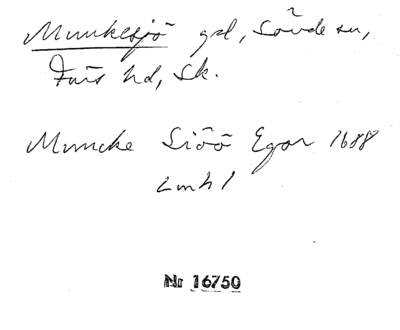 Munkesjö gd, Sövde sn,
Färs hd, Sk.
Muncke Siöö Egor 1688
LmA 1
Nr 16750